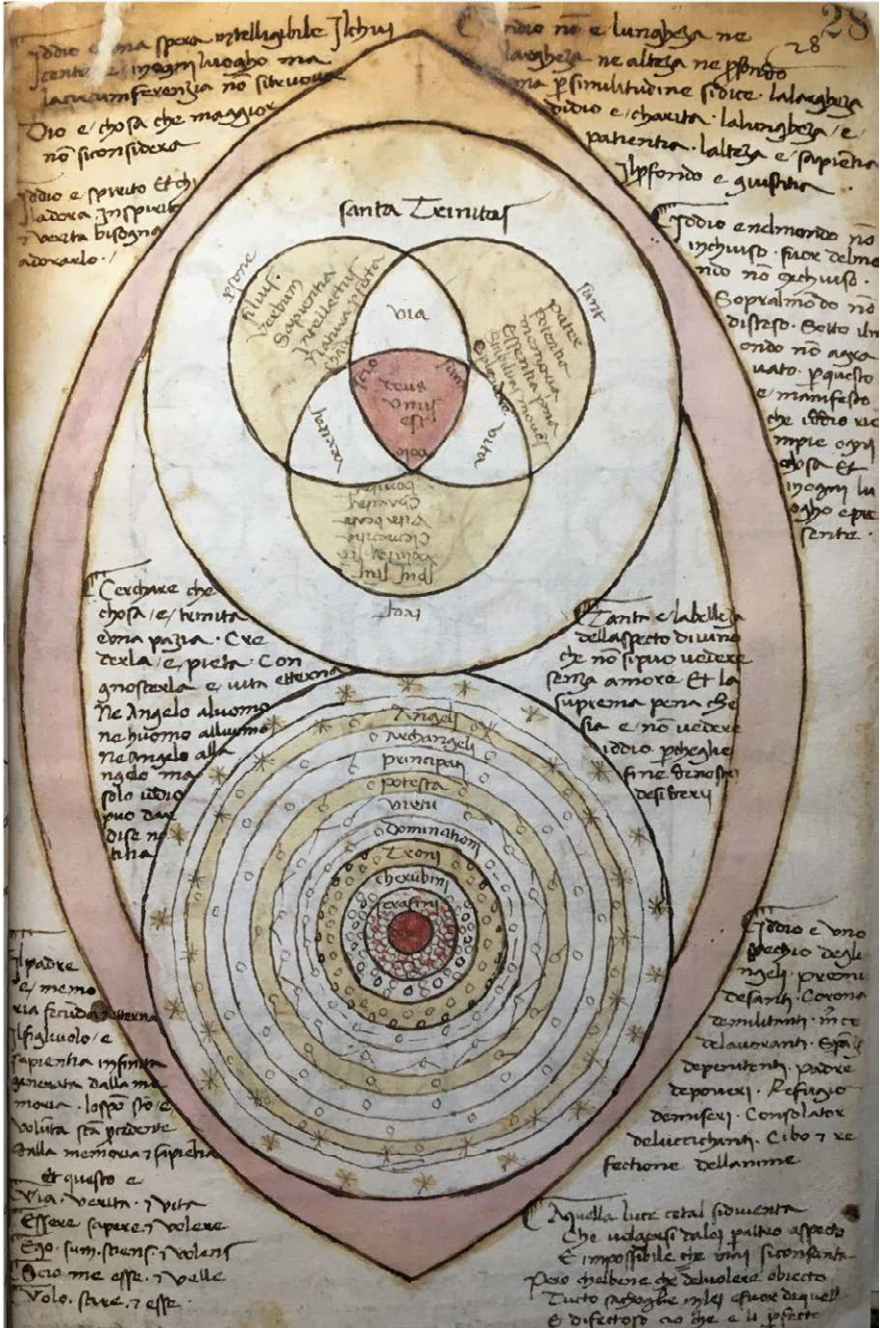 28
28
Iddio e una spera intelligibile Ilchui
centro e inogni luogho ma
lacircumferenzia nō sitruova
Dio e chosa che maggior
nō siconsidera
Iddio e spirito Et chi
ladora Inspirito
⁊ verita bisogna
adorarlo
Iddio nō e lungheza ne
largheza ne alteza ne pfondo
ma p similitudine sidice · lalargheza
didio e charita · lalungheza e
patientia · lalteza e sapientia
Ilpfondo e giustitia
Iddio e nelmondo nō
inchiuso · fuor delmo
ndo nō exchiuso ·
Sopralmōdo nō
disteso · Sotto ilm
ondo nō aggra
vato · pquesto
e manifesto
che iddio rie
mpie ogni
chosa Et
inogni lu
ogho epre
sente ·
santa Trinitas
filius ·
Verbum
Sapientia
Intellectus
via
sunt
pater
potentia
memoria
Essentia
scio
sum
deus
unus
est
volo
veritas
vita
Cerchare che
chosa e trinita
e una pazia · Cre
derla e pieta · Con
gnoscerla e vita etterna
Ne Angelo aluomo
ne huomo alluomo
Ne angelo alla
ngelo ma
solo iddio
puo dar
dise no
titia
Tanta e labelleza
dellaspecto divino
che nō sipuo vedere
senza amore Et la
suprema pena che
sia e nō vedere
iddio pchegli e
fine dinostri
desiderii
Angeli
Archangeli
principati
potesta
virtu
Dominationi
Troni
cherubini
serafini
Il padre
e memo
ria fecunda etterna
Ilfigliuolo e
sapientia infinita
generata dalla me
moria · lospō sto e
volūta scā pcedente
dalla memoria ⁊ sapientia
Et questo e
Via · verita · ⁊ vita
Essere sapere ⁊ volere
Ego · sum · sciens · ⁊ volens
Scio me esse · ⁊ velle
Volo · scire · ⁊ esse ·
Iddio e uno
specchio degli
angeli · premi
desanti · Corona
demilitanti ·
delavoranti ·
depenitenti · padre
depoveri · Refugio
demiseri · Consolator
Cibo ⁊ re
fectione dellanime
Aquella luce cotal sidiventa
Che volgersi dalei paltro aspecto
E impossibile che mai siconsenta
Pero chelbene che delvolere obiecto
Tucto sachoglie inlei efuor diquell
E difectivo cio che e li pfecto